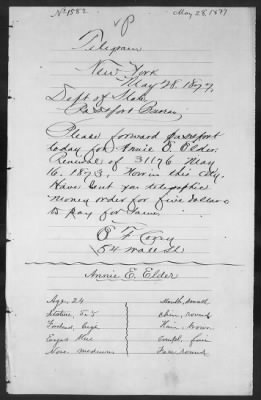 No 1582 May 28, 1877
P
Telegram
New York
May 28. 1877.
Dept of State
Passport Bureau
Please forward passport
today for Annie E. Elder.
Renewal of 31176 May
16. 1873. Now in this city.
Have sent you telegraphic
money order for five dollars
to pay for same.
54 Wall St
Annie E. Elder
Age, 24 Mouth, small
Stature, 5.5 Chin, round
Forehead, large Hair, brown
Eyes, blue Compl. fair
Nose, medium Face round